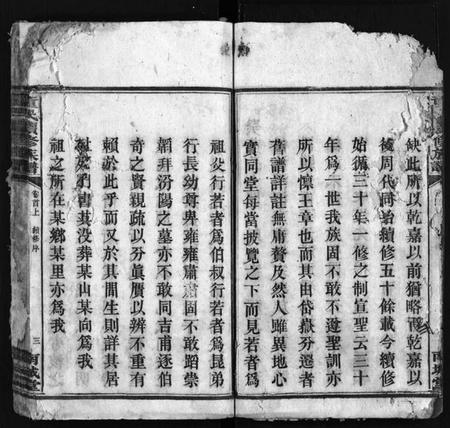 缺此所以乾嘉以前猶略而乾嘉以
後周代同治續修五十餘載今續修
始循三十年一修之制宣聖云三十
年為一世我族固不敢不遵聖訓亦
所以懔王章也而其由岱嶽分遷者
舊譜詳註無庸贅及然人雖異地心
實同堂每當披覽之下而見若者為
祖父行若者為伯叔行若者為昆弟
行長幼尊卑雍雍肅肅固不敢蹈崇
韜拜汾陽之墓亦不敢同吉甫逐伯
奇之賢親疏以分眞贋以辨不重有
賴於此乎而又於其開生則詳其居
址於書其没葬某山某向為我
祖之所在某鄉某里亦為我
修族譜
卷首上
續修序
三
城堂